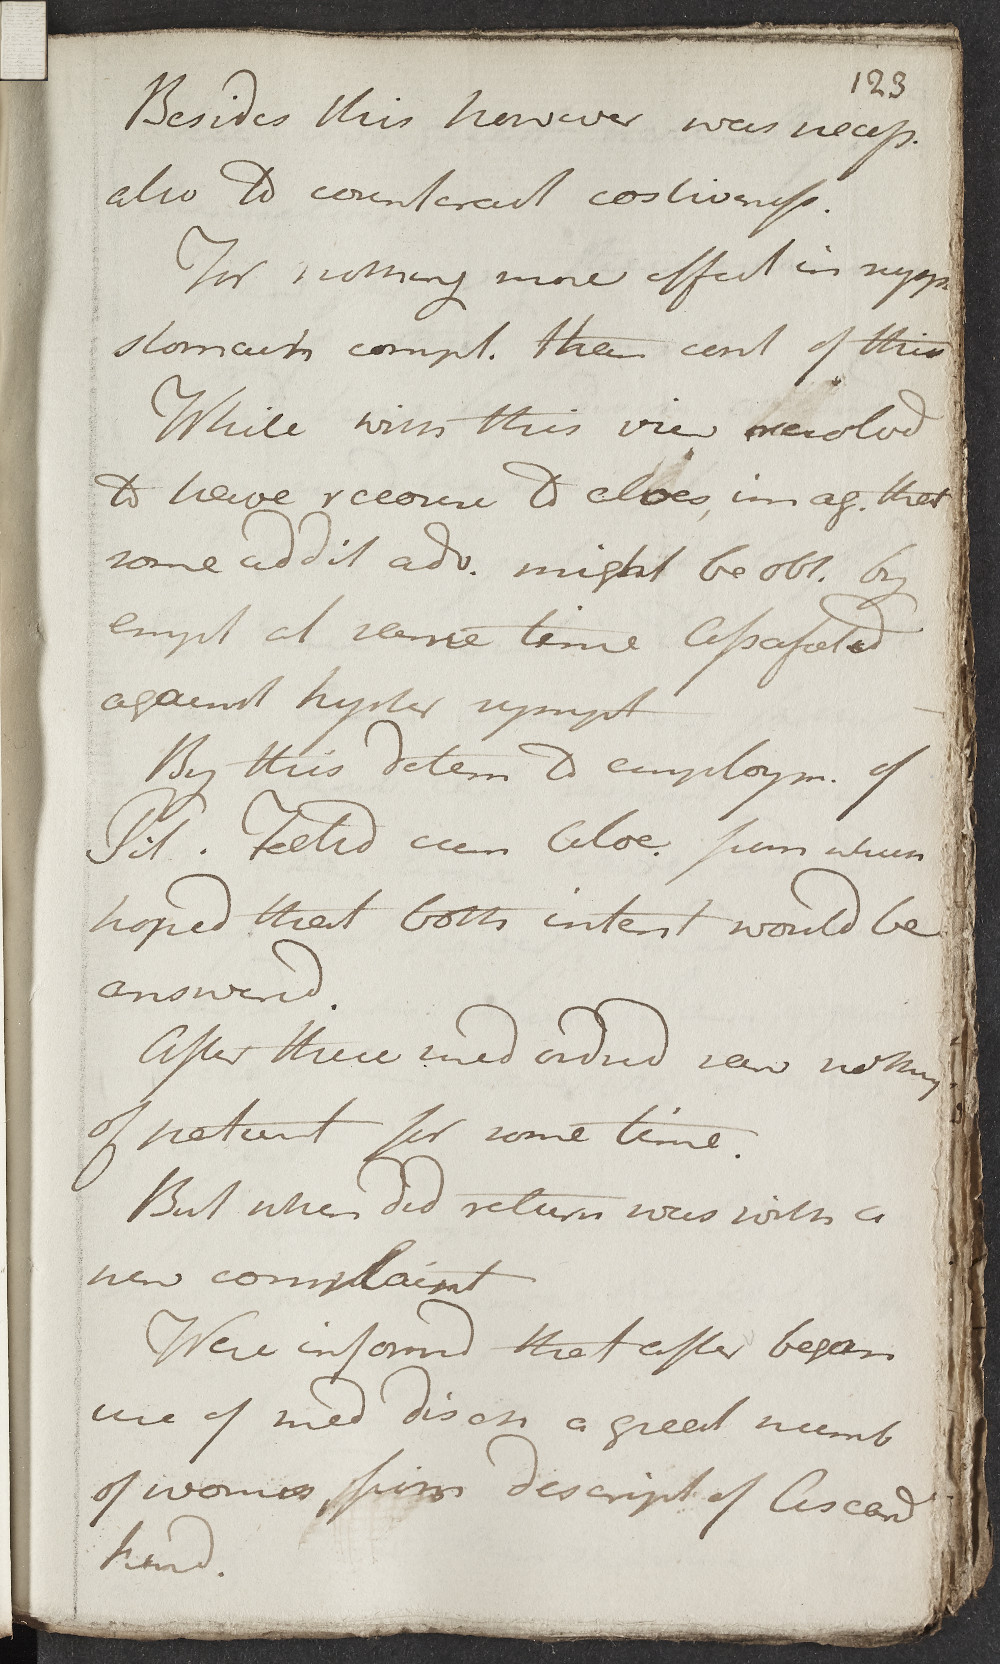 123
Besides this however was necess.
also to counteract costiveness.
For nothing more effect in
stomach compl. than cont of this
While with this view resolved
to have recourse to aloes, imag. that
some addit adv. might be obt. by
empt at same time Assafoetid
against hyster sympt
By this determ to employm. of
Pil. Foetid cum Aloe. from whence
hoped that both intent would be
answered.
After these med ordred saw nothing
of patient for some time.
But when did return was with a
new complaint
Were informd that after began
use of med disch a great numb
of worms, from descript of Ascard
kind.